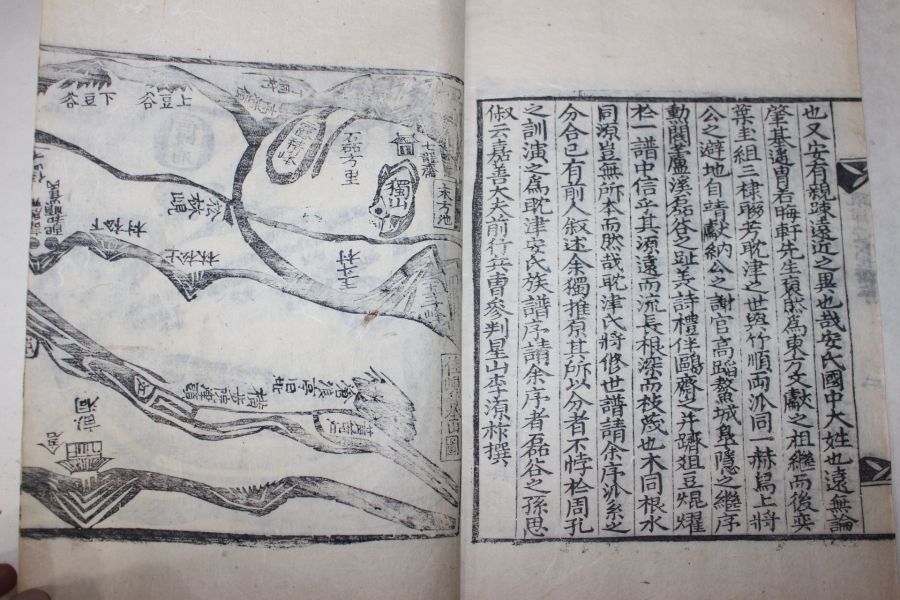 也又安有親疎遠近之異也哉安氏國中大姓也遠無論
肇基邁胄若晦軒先生蔚然爲東方文獻之祖繼而後奕
葉圭組三棣聯芳耽津之世與竹順兩派同一赫舄上將
公之避地自靖獻納公之謝官高蹈鰲城皐隱之繼序
動閥蘆溪磊谷之趾美詩禮伴鷗齋之並躋俎豆焜燿
於一譜中信乎其源遠而流長根深而枝茂也木同根水
同源豈無所本而然哉耽津氏將修世譜請余序派系之
分合已有前人叙述余獨推原其所以分者不悖於周孔
之訓演之爲耽津安氏族譜序請余序者磊谷之孫思
俶云嘉善大夫前行兵曹參判星山李源祚撰
上豆谷
上豆谷
磊方里
獨山
七
村松下
村松下
王子村
王子峰
滄浪亭旧址
橫步
洞